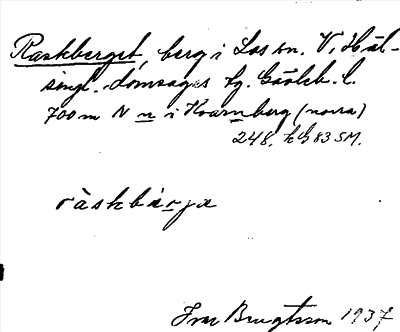 Raskberget, berg i Los sn. V. Häl-
singl. domsagas tg. Gävleb. l.
700 m N n i Kvarnberg (norra)
248. kG 83 SM.
ràskbärja
Ivar Bengtsson 1937